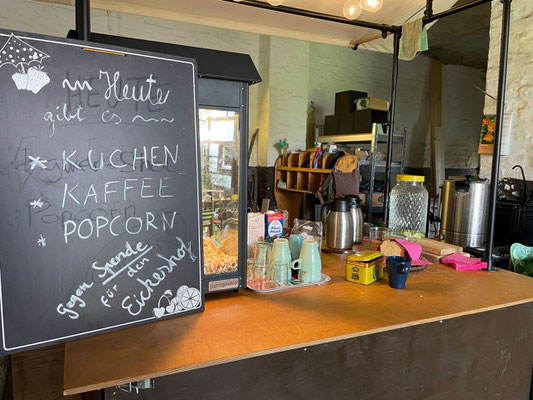 Heute
gibt es
KUCHEN
KAFFEE
POPCORN
gegen Spende
für den
Eickerhof